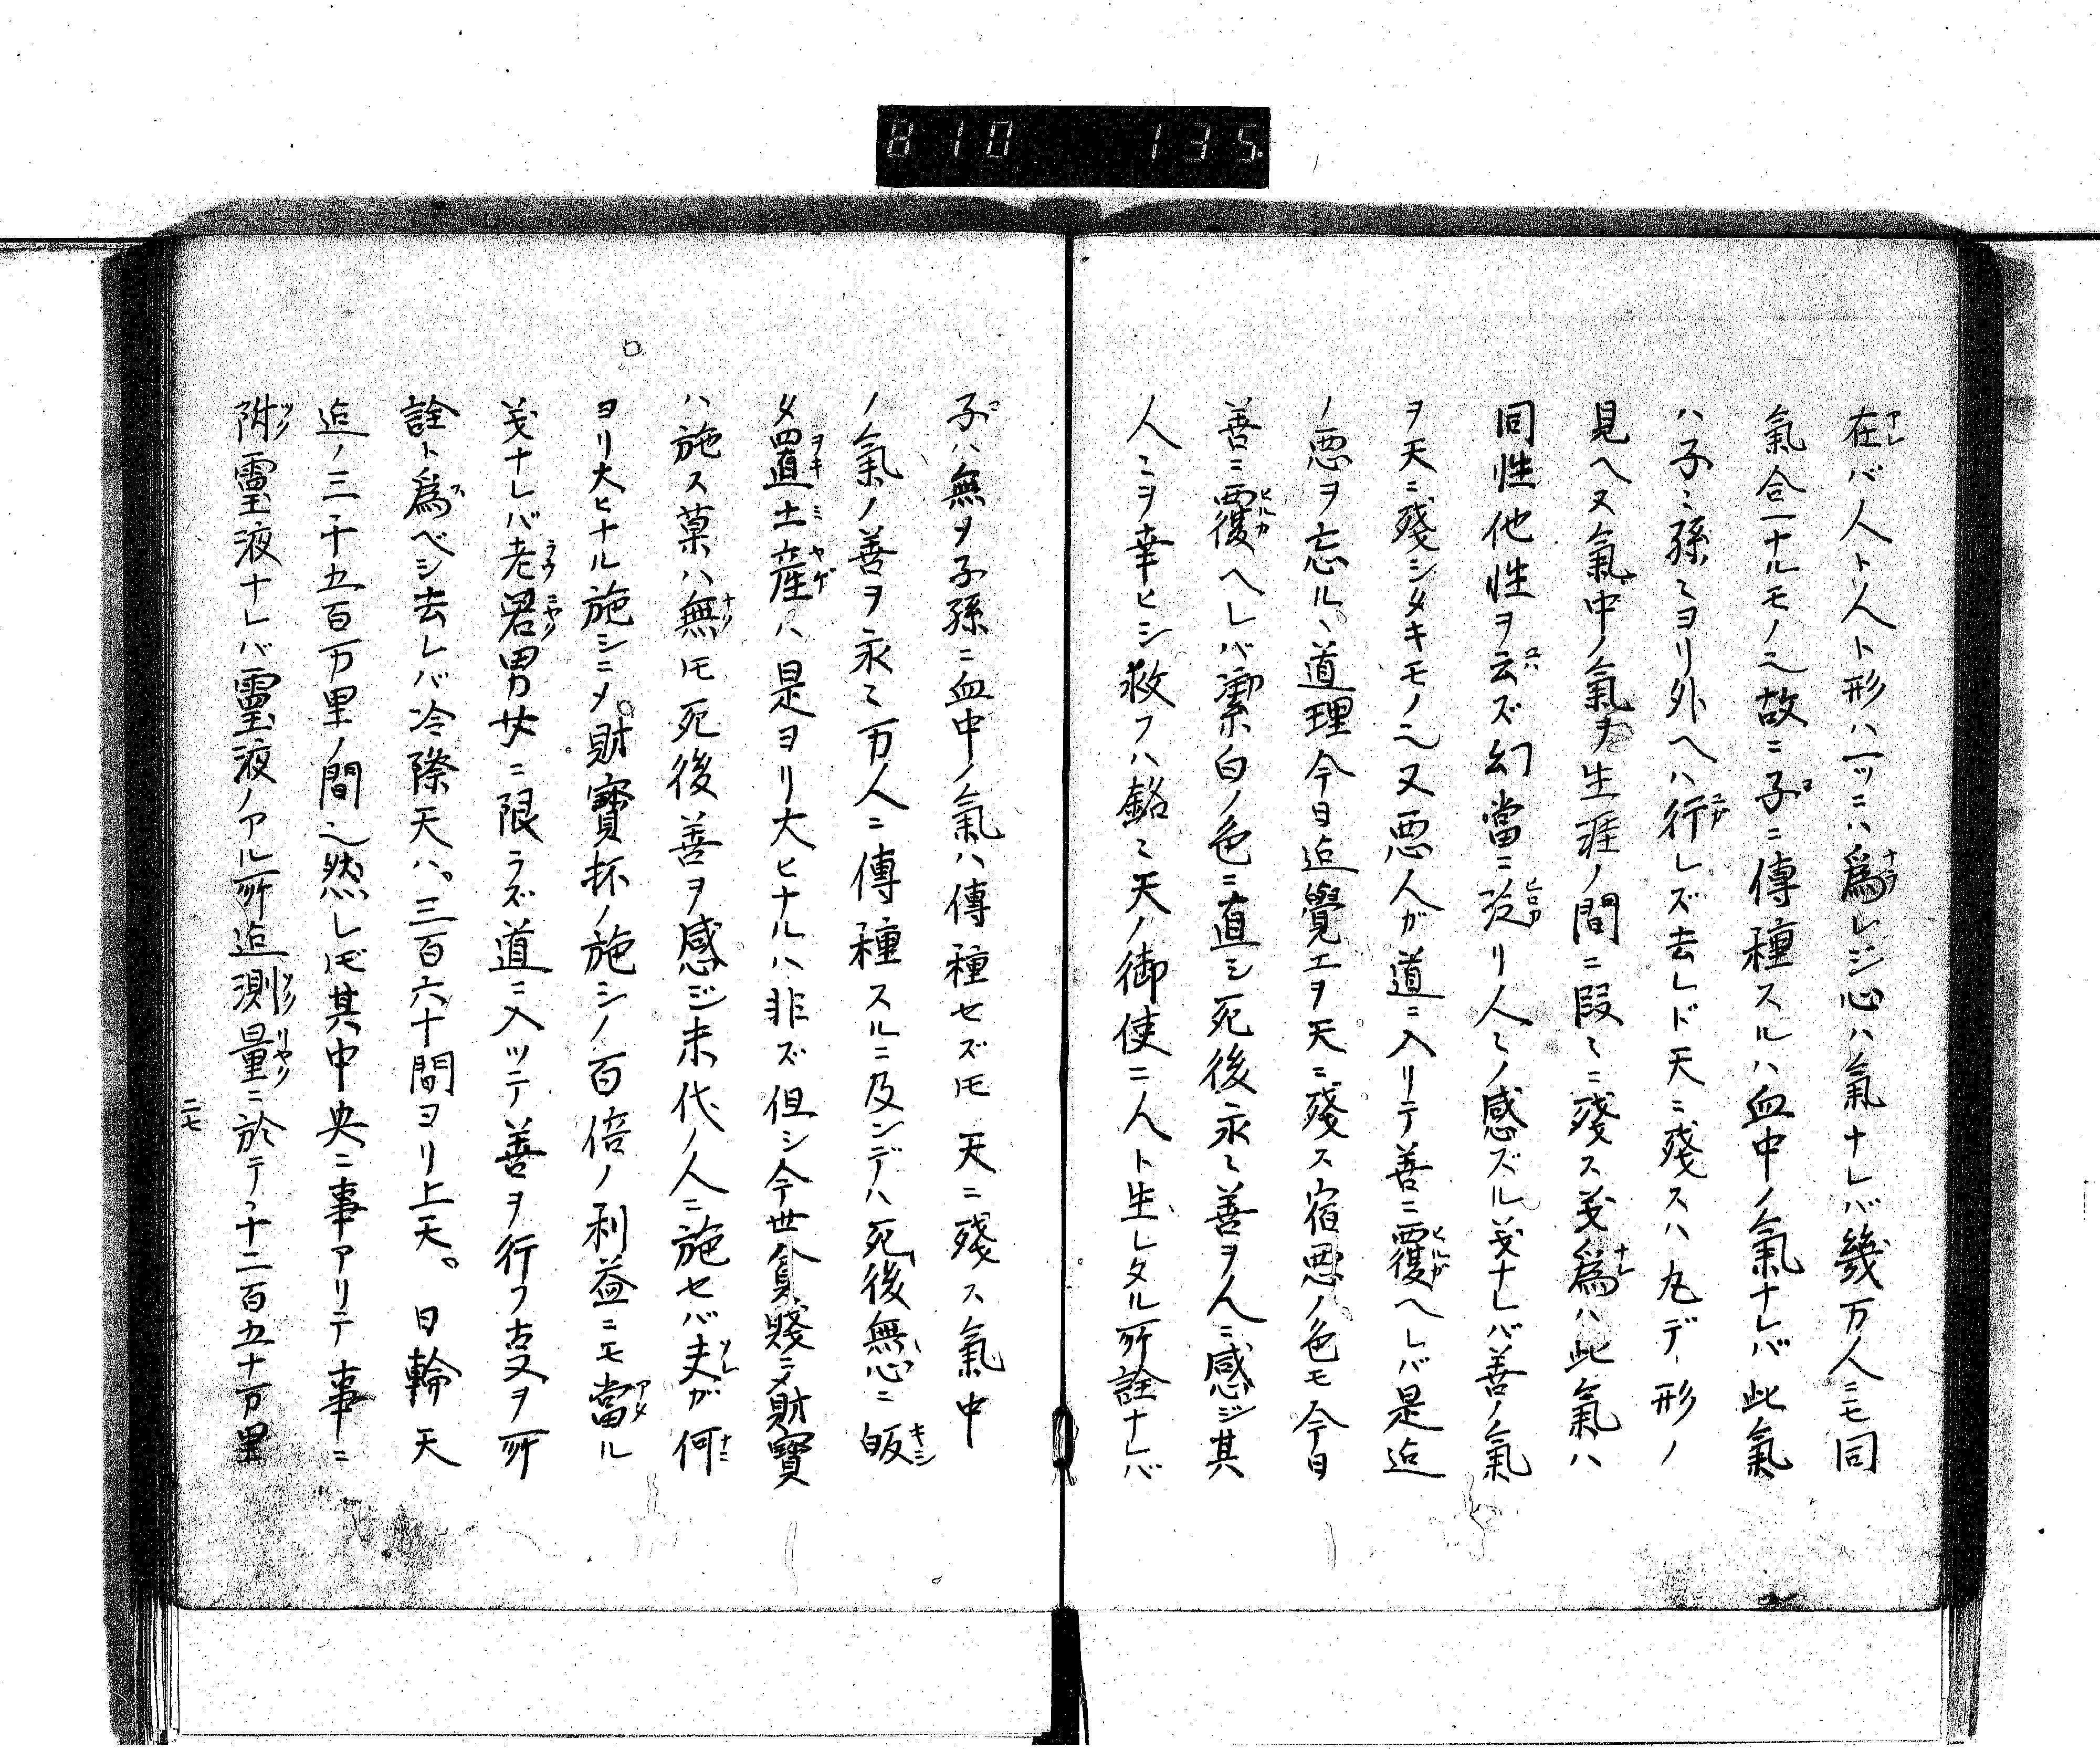 810 135
在バ人ト人ト形ハ一ッニハ爲レジ心ハ氣ナレバ幾万人ニモ同
氣合一ナルモノ也故ニ子ニ傳種スルハ血中ノ氣ナレバ此氣
ハ子々孫々ヨリ外ヘハ行レズ去レド天ニ殘スハ丸デ形ノ
見ヘヌ氣中ノ氣ヲ生涯ノ間ニ段々ニ殘ス㐧爲ハ此氣ハ
同性他性ヲ云ズ幻當ニ泛リ人々ノ感ズル㐧ナレバ善ノ氣
ヲ天ニ殘シタキモノ也又悪人ガ道ニ入リテ善ニ覆ヘレバ是迠
ノ悪ヲ忘ル丶道理今日迠覺エヲ天ニ殘ス宿悪ノ色モ今日
善ニ覆ヘレバ潔白ノ色ニ直シ死後永々善ヲ人ニ感ジ其
人々ヲ幸ヒシ救フハ銘々天ノ御使ニ人ト生レタル所詮ナレバ
子ハ無ヲ子孫ニ血中ノ氣ハ傳種セズ𪜈天ニ殘ス氣中
ノ氣ノ善ヲ永々万人ニ傳種スルニ及ンデハ死後無心ニ皈
メ置土産ハ是ヨリ大ヒナルハ非ズ但シ今世貧賤ニメ財寶
ハ施ス菓ハ無𪜈死後善ヲ感ジ末代ノ人ニ施セバ夫ガ何
ヨリ大ヒナル施シニメ。財寳抔ノ施シノ百倍ノ利益ニモ當ル
㐧ナレバ老若男女ニ限ラズ道ニ入ッテ善ヲ行フ叓ヲ所
詮ト爲ベシ去レバ冷際天ハ。三百六十間ヨリ上天。日輪天
迠ノ三千五百万里ノ間也然レ𪜈其中央ニ事アリテ事ニ
附靈液ナレバ靈液ノアル所迠測量ニ於テヲ十二百五十万里
二七